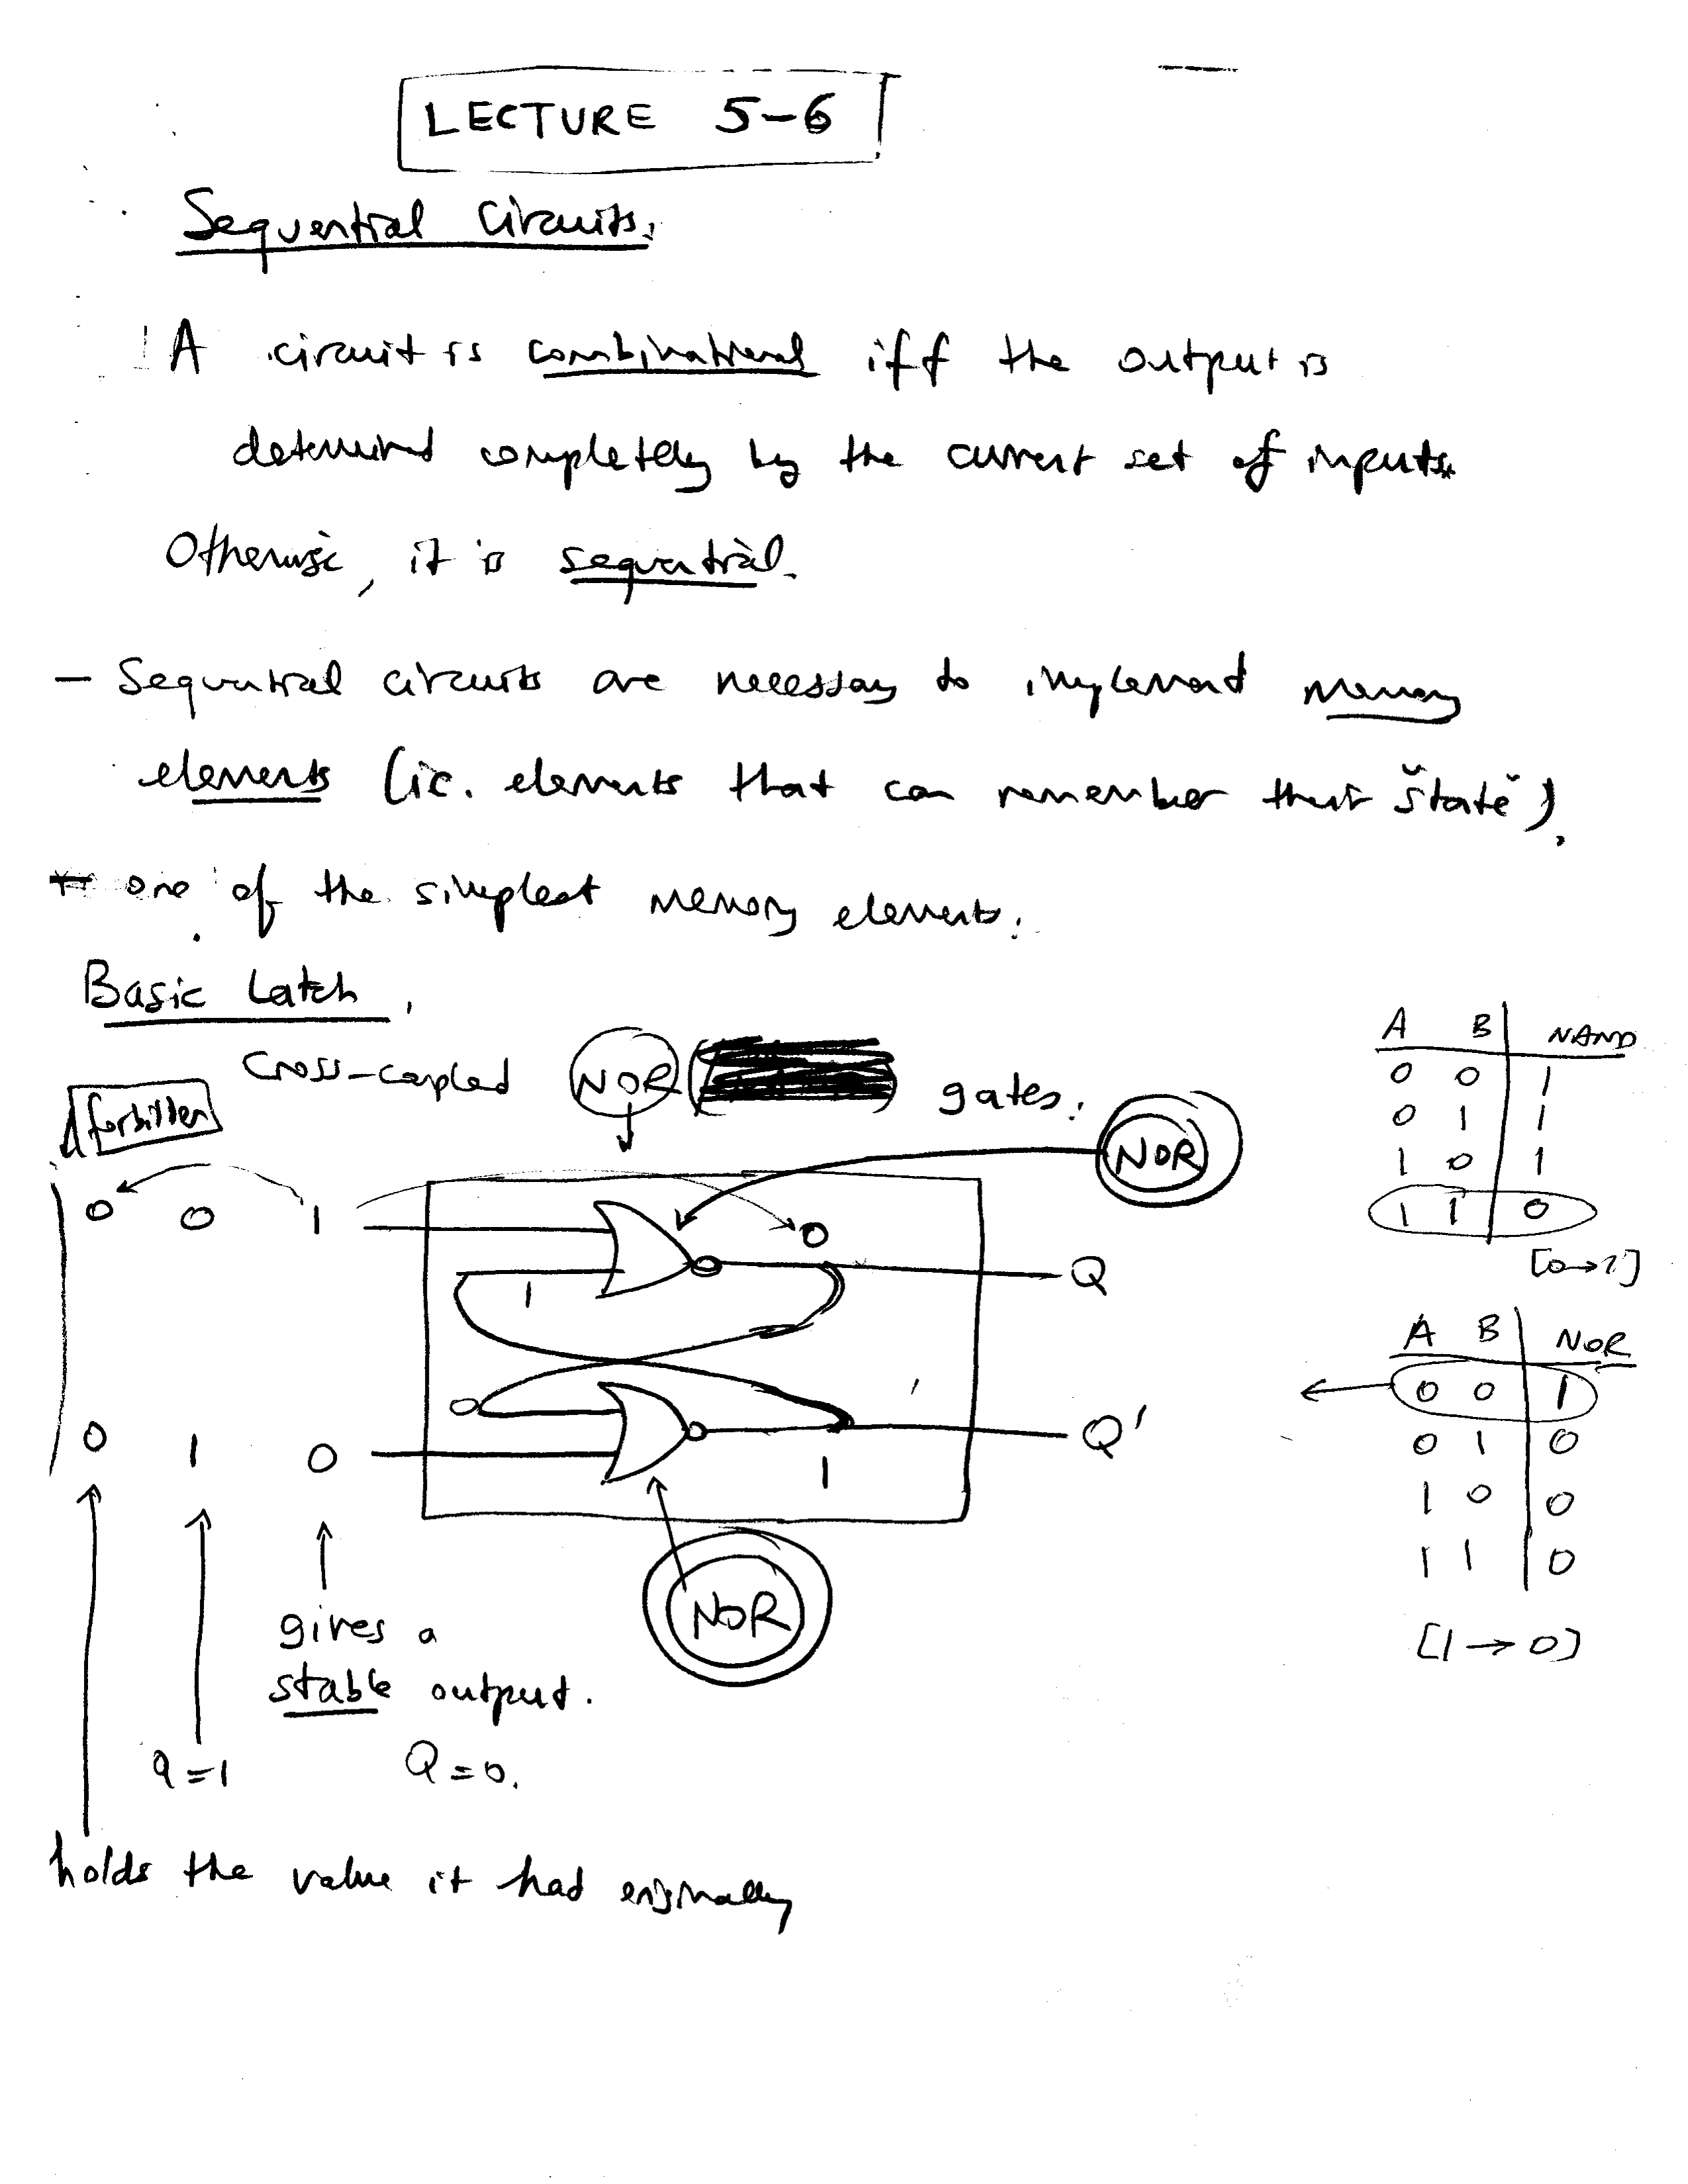 LECTURE 5-6
Sequential Circuits.
A circuit is combinational iff the output is
determined completely by the current set of inputs.
Otherwise, it is sequential.
- Sequential circuits are necessary to implement memory
elements (ie. elements that can remember their "state").
one of the simplest memory elements.
Basic Latch.
Cross-coupled NOR gates.
forbidden
NOR
0 0 1
0
1
Q
0
1
Q'
0 1 0
NOR
gives a
stable output.
q=1 Q=0.
holds the value it had originally
A B NAND
0 0 1
0 1 1
1 0 1
1 1 0
[0→1]
A B NOR
0 0 1
0 1 0
1 0 0
1 1 0
[1→0]